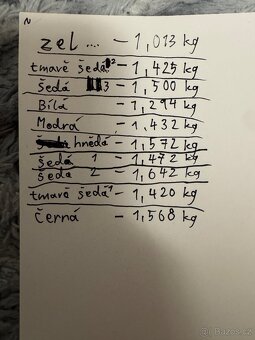 N
zel... - 1,013 kg
tmavě šedá 2 - 1,425 kg
šedá 3 - 1,500 kg
Bílá - 1,294 kg
Modrá - 1,432 kg
hnědá - 1,572 kg
šedá 1 - 1,472 kg
šedá 2 - 1,642 kg
tmavě šedá 1 - 1,420 kg
černá - 1,568 kg